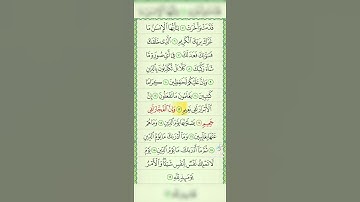 قَدَّمَتْ وَأَخَّرَتْ ۝ يَٰٓأَيُّهَا ٱلْإِنسَٰنُ مَا
غَرَّكَ بِرَبِّكَ ٱلْكَرِيمِ ۝ ٱلَّذِى خَلَقَكَ
فَسَوَّىٰكَ فَعَدَلَكَ ۝ فِىٓ أَىِّ صُورَةٍ مَّا
شَآءَ رَكَّبَكَ ۝ كَلَّا بَلْ تُكَذِّبُونَ بِٱلدِّينِ
۝ وَإِنَّ عَلَيْكُمْ لَحَٰفِظِينَ ۝ كِرَامًا
كَٰتِبِينَ ۝ يَعْلَمُونَ مَا تَفْعَلُونَ ۝ إِنَّ
ٱلْأَبْرَارَ لَفِى نَعِيمٍ ۝ وَإِنَّ ٱلْفُجَّارَ لَفِى
جَحِيمٍ ۝ يَصْلَوْنَهَا يَوْمَ ٱلدِّينِ ۝ وَمَا هُمْ
عَنْهَا بِغَآئِبِينَ ۝ وَمَآ أَدْرَىٰكَ مَا يَوْمُ ٱلدِّينِ
۝ ثُمَّ مَآ أَدْرَىٰكَ مَا يَوْمُ ٱلدِّينِ ۝ يَوْمَ
لَا تَمْلِكُ نَفْسٌ لِّنَفْسٍ شَيْـًٔا ۖ وَٱلْأَمْرُ
يَوْمَئِذٍ لِّلَّهِ ۝